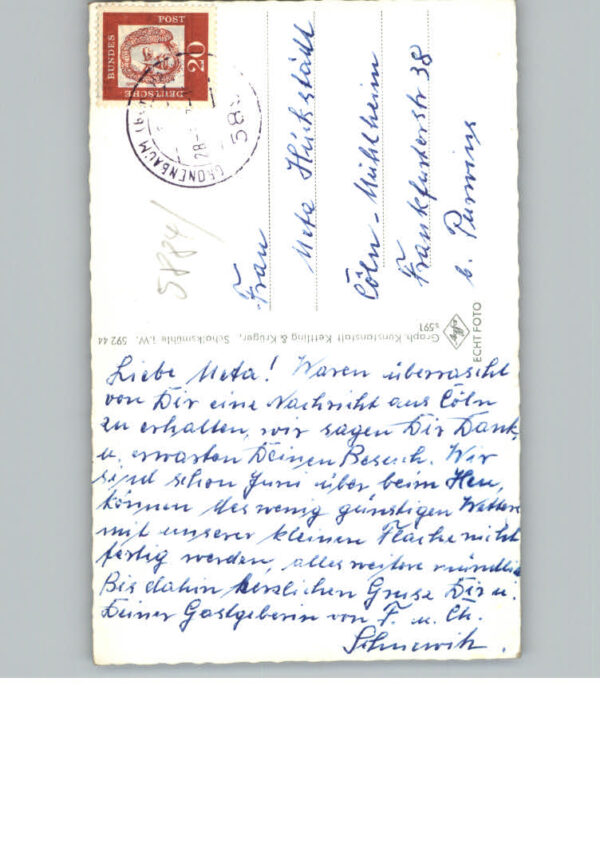 Liebe Meta! Waren überrascht
von Dir eine Nachricht aus Cöln
zu erhalten, wir sagen Dir Dank,
u. erwarten Deinen Besuch. Wir
sind schon Juni über beim Heu,
können des wenig günstigen Wetters
mit unserer kleinen Fläche nicht
fertig werden, alles weitere mündlich
Bis dahin herzlichen Grüse Dir u.
Deiner Gastgeberin von F. u. Ch.
Frau
Meta
Cöln-Mühlheim
Frankfurterstr 38
b.
5884/
DEUTSCHE BUNDESPOST
20
GRONENBAUM
28
589
Graph. Kunstanstalt Kettling & Krüger, Schalksmühle i.W. 592 44
s591
Agfa
ECHT FOTO